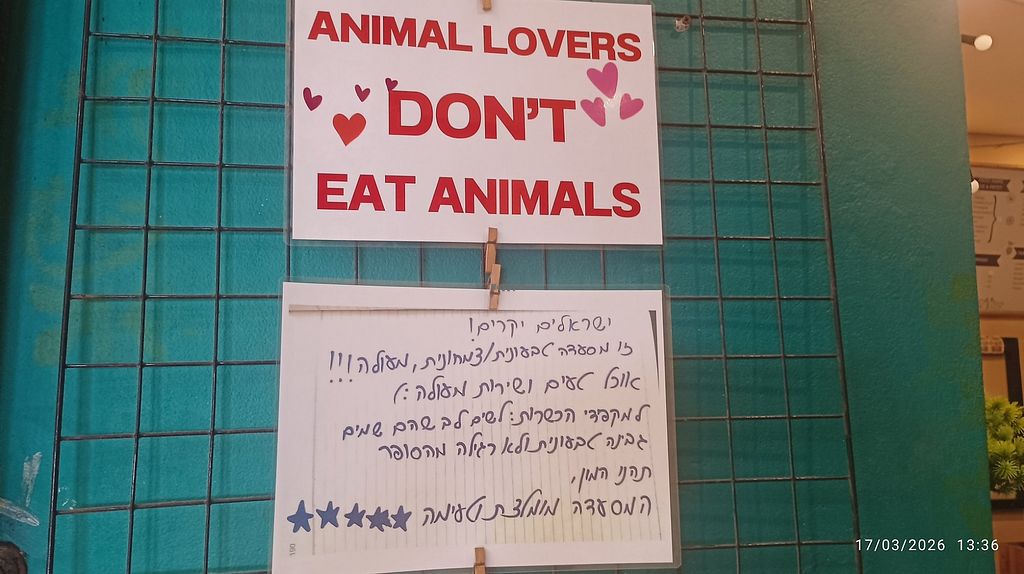 ANIMAL LOVERS
DON'T
EAT ANIMALS
ישראלים יקרים!
זו מסעדה טבעונית/צמחונית, מעולה!!!
אוכל טעים ושירות מעולה :)
למקפדי הכשרות: לשים לב שהם שמים
גבינה טבעונית ולא רגילה מהסופר
תהנו המון,
המסעדה מומלצת וטעימה
190
17/03/2026 13:36